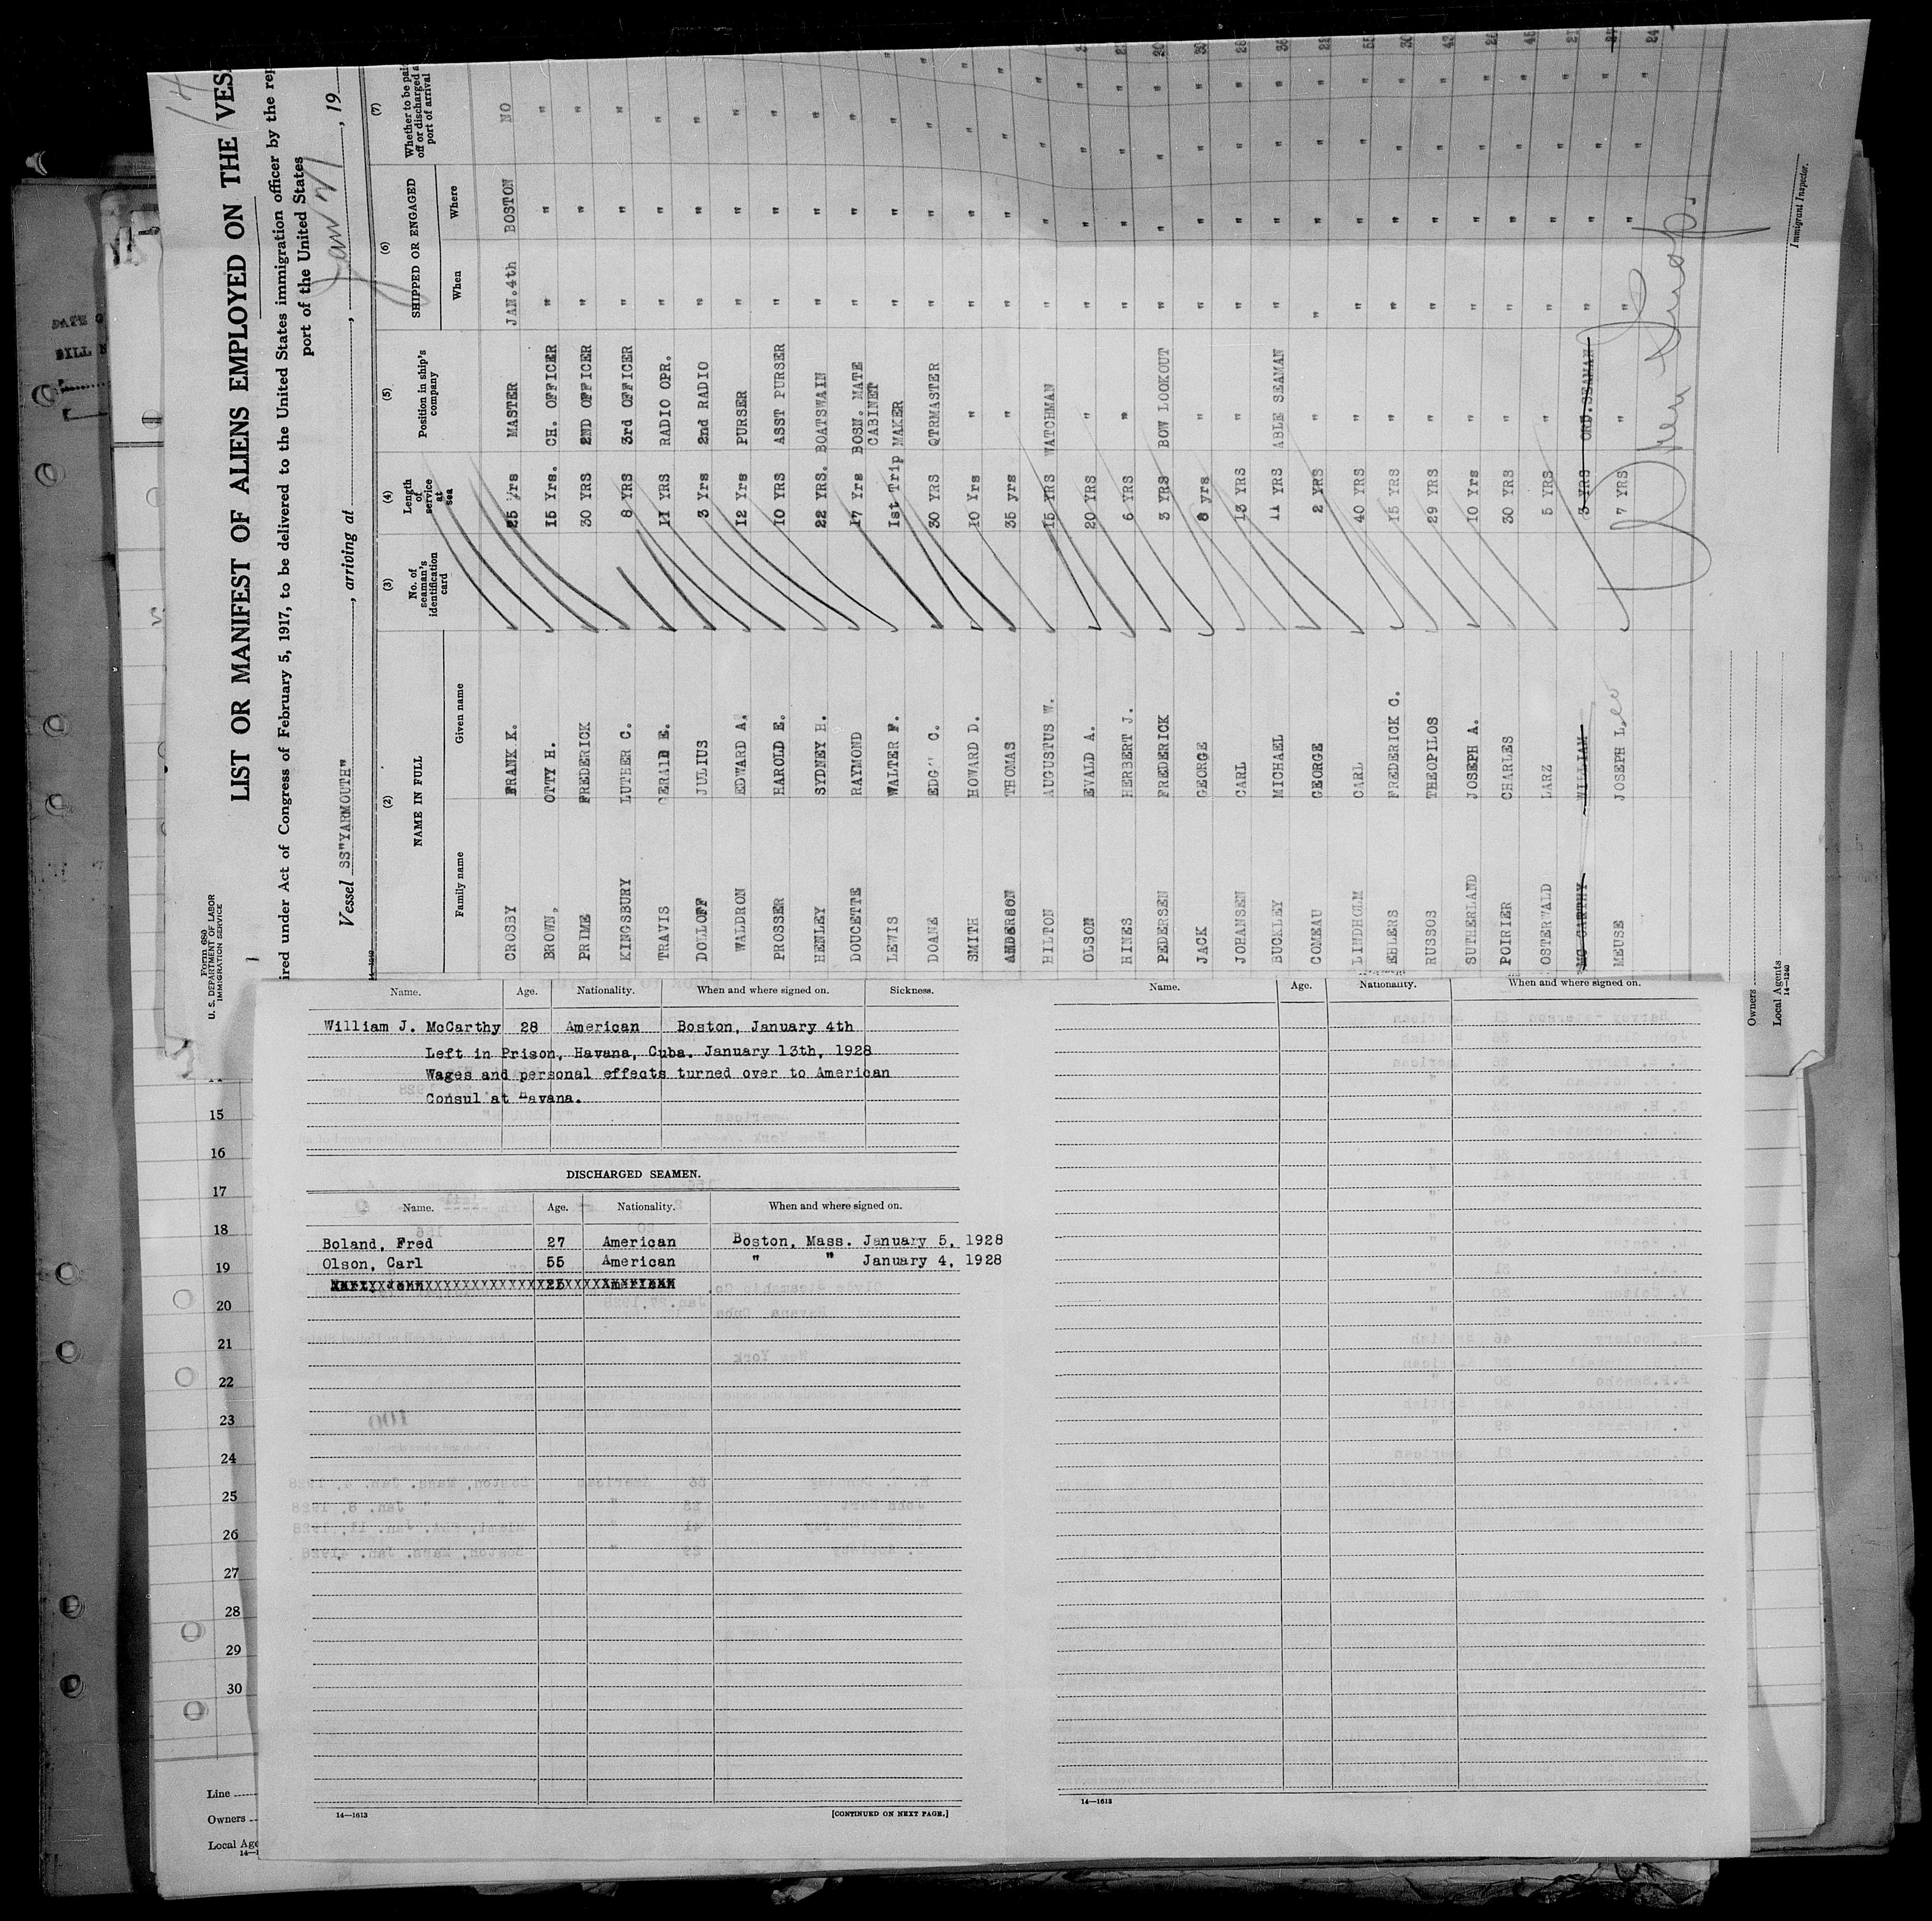 Form 680
U. S. DEPARTMENT OF LABOR
IMMIGRATION SERVICE
LIST OR MANIFEST OF ALIENS EMPLOYED ON THE VES
ired under Act of Congress of February 5, 1917, to be delivered to the United States immigration officer by the rep
port of the United States
Vessel SS"YARMOUTH" , arriving at , Jan 21 , 19
14
(2) (3) (4) (5) (6) (7)
NAME IN FULL
Family name Given name
No. of seaman's identification card
Length of service at sea
Position in ship's company
SHIPPED OR ENGAGED
When Where
Whether to be pai off or discharged a port of arrival
CROSBY FRANK K. 25 Yrs MASTER JAN.4th BOSTON NO
BROWN, OTTY H. 15 Yrs. CH. OFFICER " " "
PRIME FREDERICK 30 YRS 2ND OFFICER " " "
KINGSBURY LUTHER C. 8 YRS 3rd OFFICER " " "
TRAVIS GERALD E. 11 YRS RADIO OPR. " " "
DOLLOFF JULIUS 3 Yrs 2nd RADIO " " "
WALDRON EDWARD A. 12 Yrs PURSER " " "
PROSSER HAROLD E. 10 YRS ASST PURSER " " "
HENLEY SYDNEY H. 22 YRS. BOATSWAIN " " "
DOUCETTE RAYMOND 17 Yrs BOSN. MATE " " "
LEWIS WALTER F. 1st Trip CABINET MAKER " " "
DOANE EDG" C. 30 YRS QTRMASTER " " "
SMITH HOWARD D. 10 Yrs " " " "
ANDERSON THOMAS 35 yrs " " " "
HILTON AUGUSTUS W. 15 YRS WATCHMAN " " "
OLSON EVALD A. 20 YRS " " " "
HINES HERBERT J. 6 YRS " " " "
PEDERSEN FREDERICK 3 YRS BOW LOOKOUT " " " 20
JACK GEORGE 8 yrs " " " "
JOHANSEN CARL 13 YRS " " " " 28
BUCKLEY MICHAEL 11 YRS ABLE SEAMAN " " " 36
COMEAU GEORGE 2 YRS " " " "
LINDHOLM CARL 40 YRS " " " " 55
EHLERS FREDERICK C. 15 YRS " " " " 30
RUSSOS THEOPILOS 29 YRS " " " "
SUTHERLAND JOSEPH A. 10 Yrs " " " "
POIRIER CHARLES 30 YRS " " " "
OSTERWALD LARZ 5 YRS " " " "
MC CARTHY WILLIAM 3 YRS ORD.SEAMAN " " "
MEUSE JOSEPH Leo 7 YRS " " " " 24
Immigrant Inspector.
Owners
Local Agents
14—1240
Name. Age. Nationality. When and where signed on. Sickness.
William J. McCarthy 28 American Boston, January 4th
Left in Prison, Havana, Cuba. January 13th, 1928
Wages and personal effects turned over to American
Consul at Havana.
DISCHARGED SEAMEN.
Name. Age. Nationality. When and where signed on.
Boland, Fred 27 American Boston, Mass. January 5, 1928
Olson, Carl 55 American " " January 4, 1928
14—1613 [CONTINUED ON NEXT PAGE.]
Name. Age. Nationality. When and where signed on.
14—1613
15
16
17
18
19
20
21
22
23
24
25
26
27
28
29
30
Line
Owners
Local Age